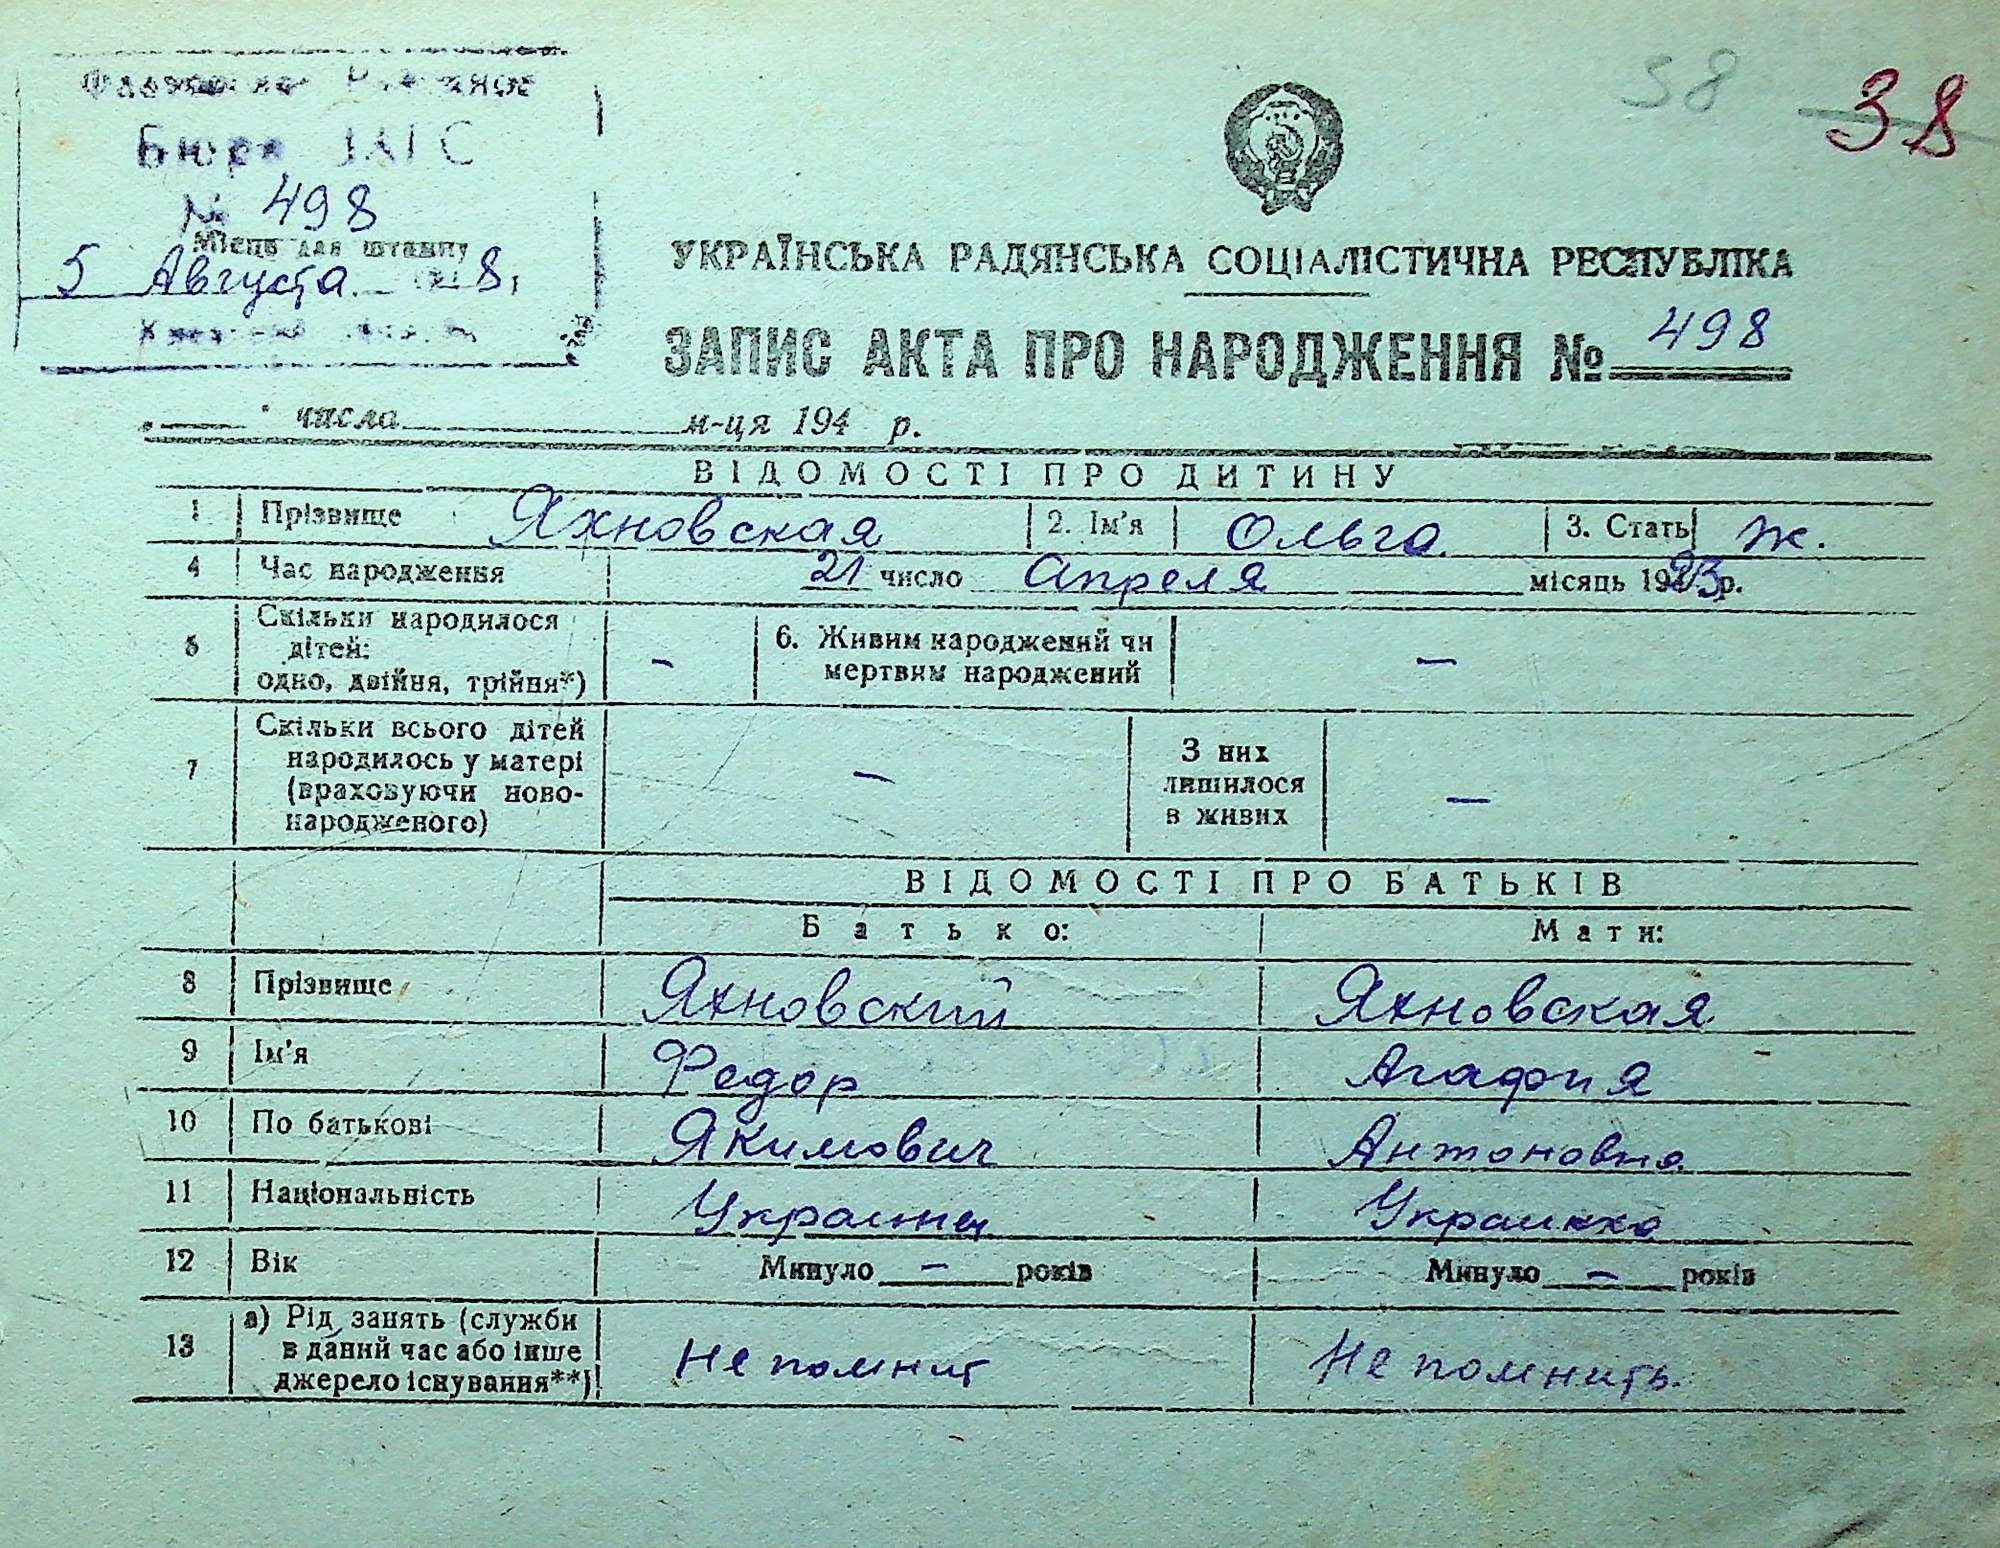 38 38
Бюро ЗАГС
№ 498
Місце для штампу
5 Августа 194 8,
УКРАЇНСЬКА РАДЯНСЬКА СОЦІАЛІСТИЧНА РЕСПУБЛІКА
ЗАПИС АКТА ПРО НАРОДЖЕННЯ № 498
числа м-ця 194 р.
ВІДОМОСТІ ПРО ДИТИНУ
1 Прізвище Яхновская 2. Ім'я Ольга 3. Стать ж.
4 Час народження 21 число Апреля місяць 1923 р.
5 Скільки народилося дітей: одно, двійня, трійня*) – 6. Живим народжений чи мертвим народжений –
7 Скільки всього дітей народилось у матері (враховуючи ново-народженого) – З них лишилося в живих –
ВІДОМОСТІ ПРО БАТЬКІВ
Батько: Мати:
8 Прізвище Яхновский Яхновская
9 Ім'я Федор Агафия
10 По батькові Якимович Антоновна
11 Національність Украинец Украинка
12 Вік Минуло – років Минуло – років
13 а) Рід занять (служби в даний час або інше джерело існування**) Не помнит Не помнить.